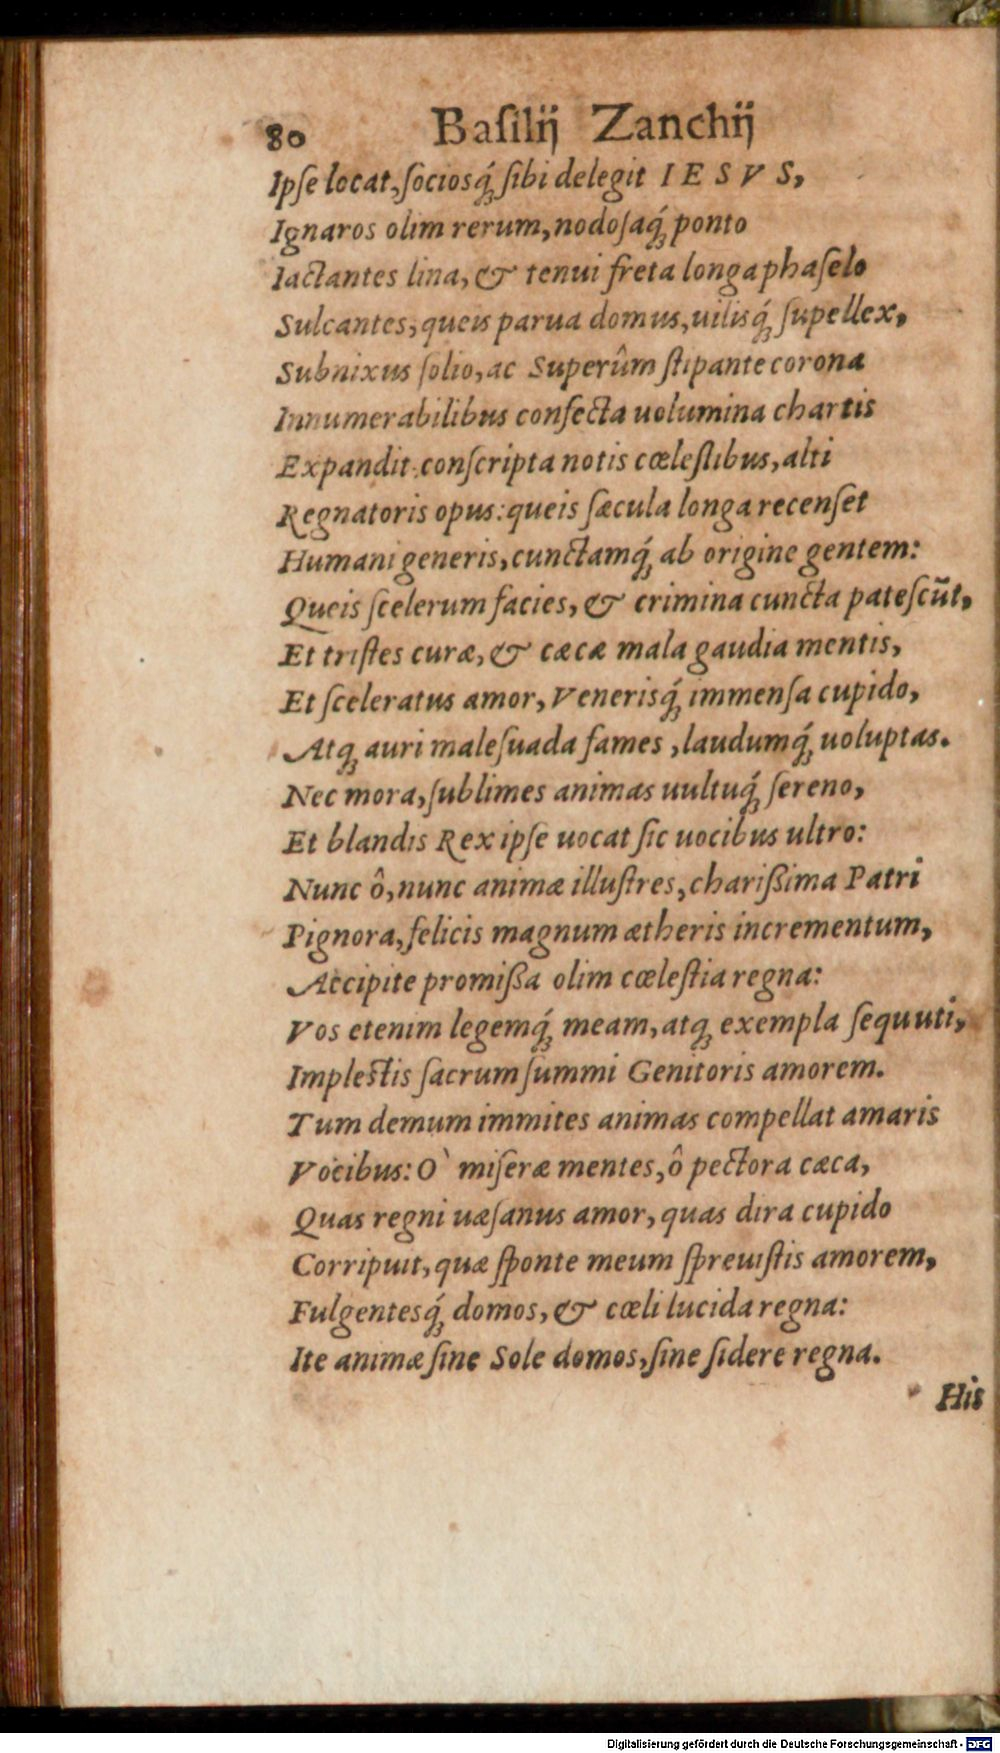 80 Baſilij Zanchij
Ipſe locat, ſociosq́; ſibi delegit IESVS,
Ignaros olim rerum, nodoſaq́; ponto
Iactantes lina, & tenui freta longa phaſelo
Sulcantes, queis parua domus, uilisq́; ſupellex,
Subnixus ſolio, ac Superûm ſtipante corona
Innumerabilibus confecta uolumina chartis
Expandit conſcripta notis cœleſtibus, alti
Regnatoris opus: queis ſæcula longa recenſet
Humani generis, cunctamq́; ab origine gentem:
Queis ſcelerum facies, & crimina cuncta pateſcūt,
Et triſtes curæ, & cæcæ mala gaudia mentis,
Et ſceleratus amor, Venerisq́; immenſa cupido,
Atq; auri maleſuada fames, laudumq́; uoluptas.
Nec mora, ſublimes animas uultuq́; ſereno,
Et blandis Rex ipſe uocat ſic uocibus ultro:
Nunc ô, nunc animæ illuſtres, chariſsima Patri
Pignora, felicis magnum ætheris incrementum,
Accipite promiſsa olim cœleſtia regna:
Vos etenim legemq́; meam, atq; exempla ſequuti,
Impleſtis ſacrum ſummi Genitoris amorem.
Tum demum immites animas compellat amaris
Vocibus: O` miſeræ mentes, ô pectora cæca,
Quas regni uæſanus amor, quas dira cupido
Corripuit, quæ ſponte meum ſpreuiſtis amorem,
Fulgentesq́; domos, & cœli lucida regna:
Ite animæ ſine Sole domos, ſine ſidere regna.
His
Digitalisierung gefördert durch die Deutsche Forschungsgemeinschaft - DFG